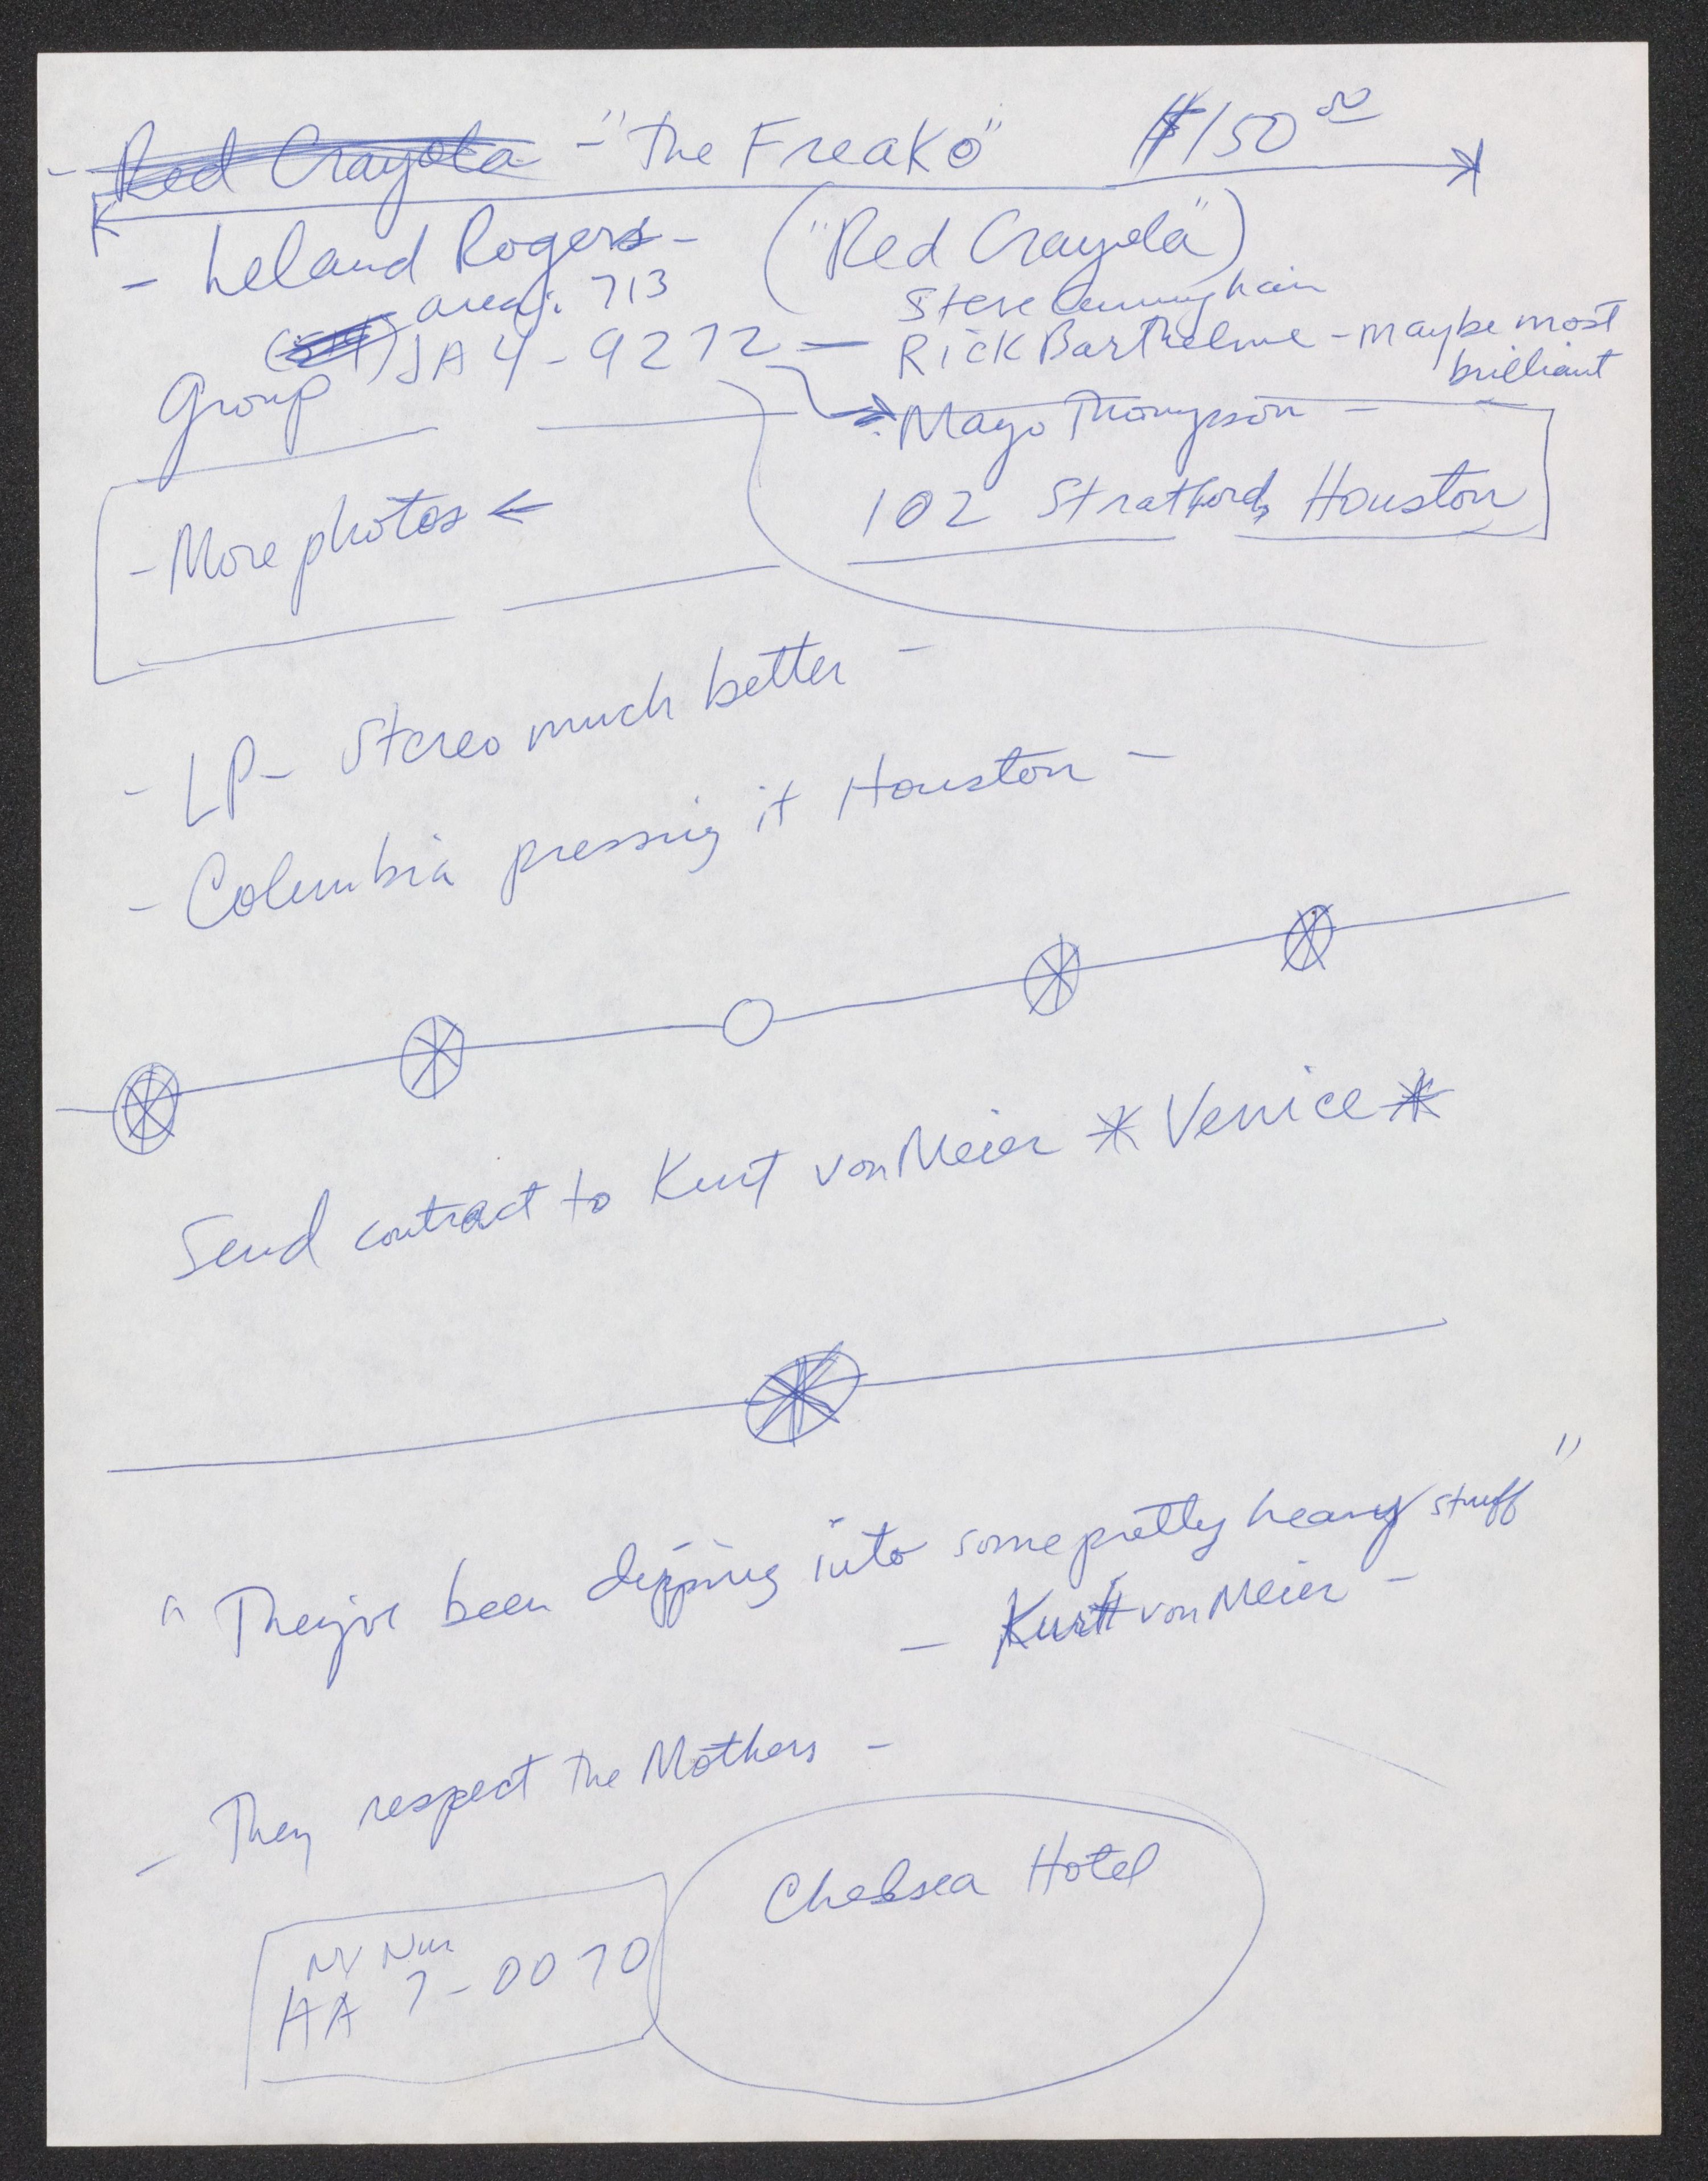 - Red Crayola - "The Freako" $150.00
- Leland Rogers - ("Red Crayola")
area: 713 Steve Cunningham
JA 4-9272 — Rick Barthelme - maybe most brilliant
Group
Mayo Thompson -
102 Stratford, Houston
- More photos ←
- LP - Stereo much better -
- Columbia pressing it Houston -
Send contract to Kurt von Meier * Venice *
"They've been dipping into some pretty heavy stuff"
- Kurt von Meier -
- They respect the Mothers -
Chelsea Hotel
NY Num
HA 7-0070